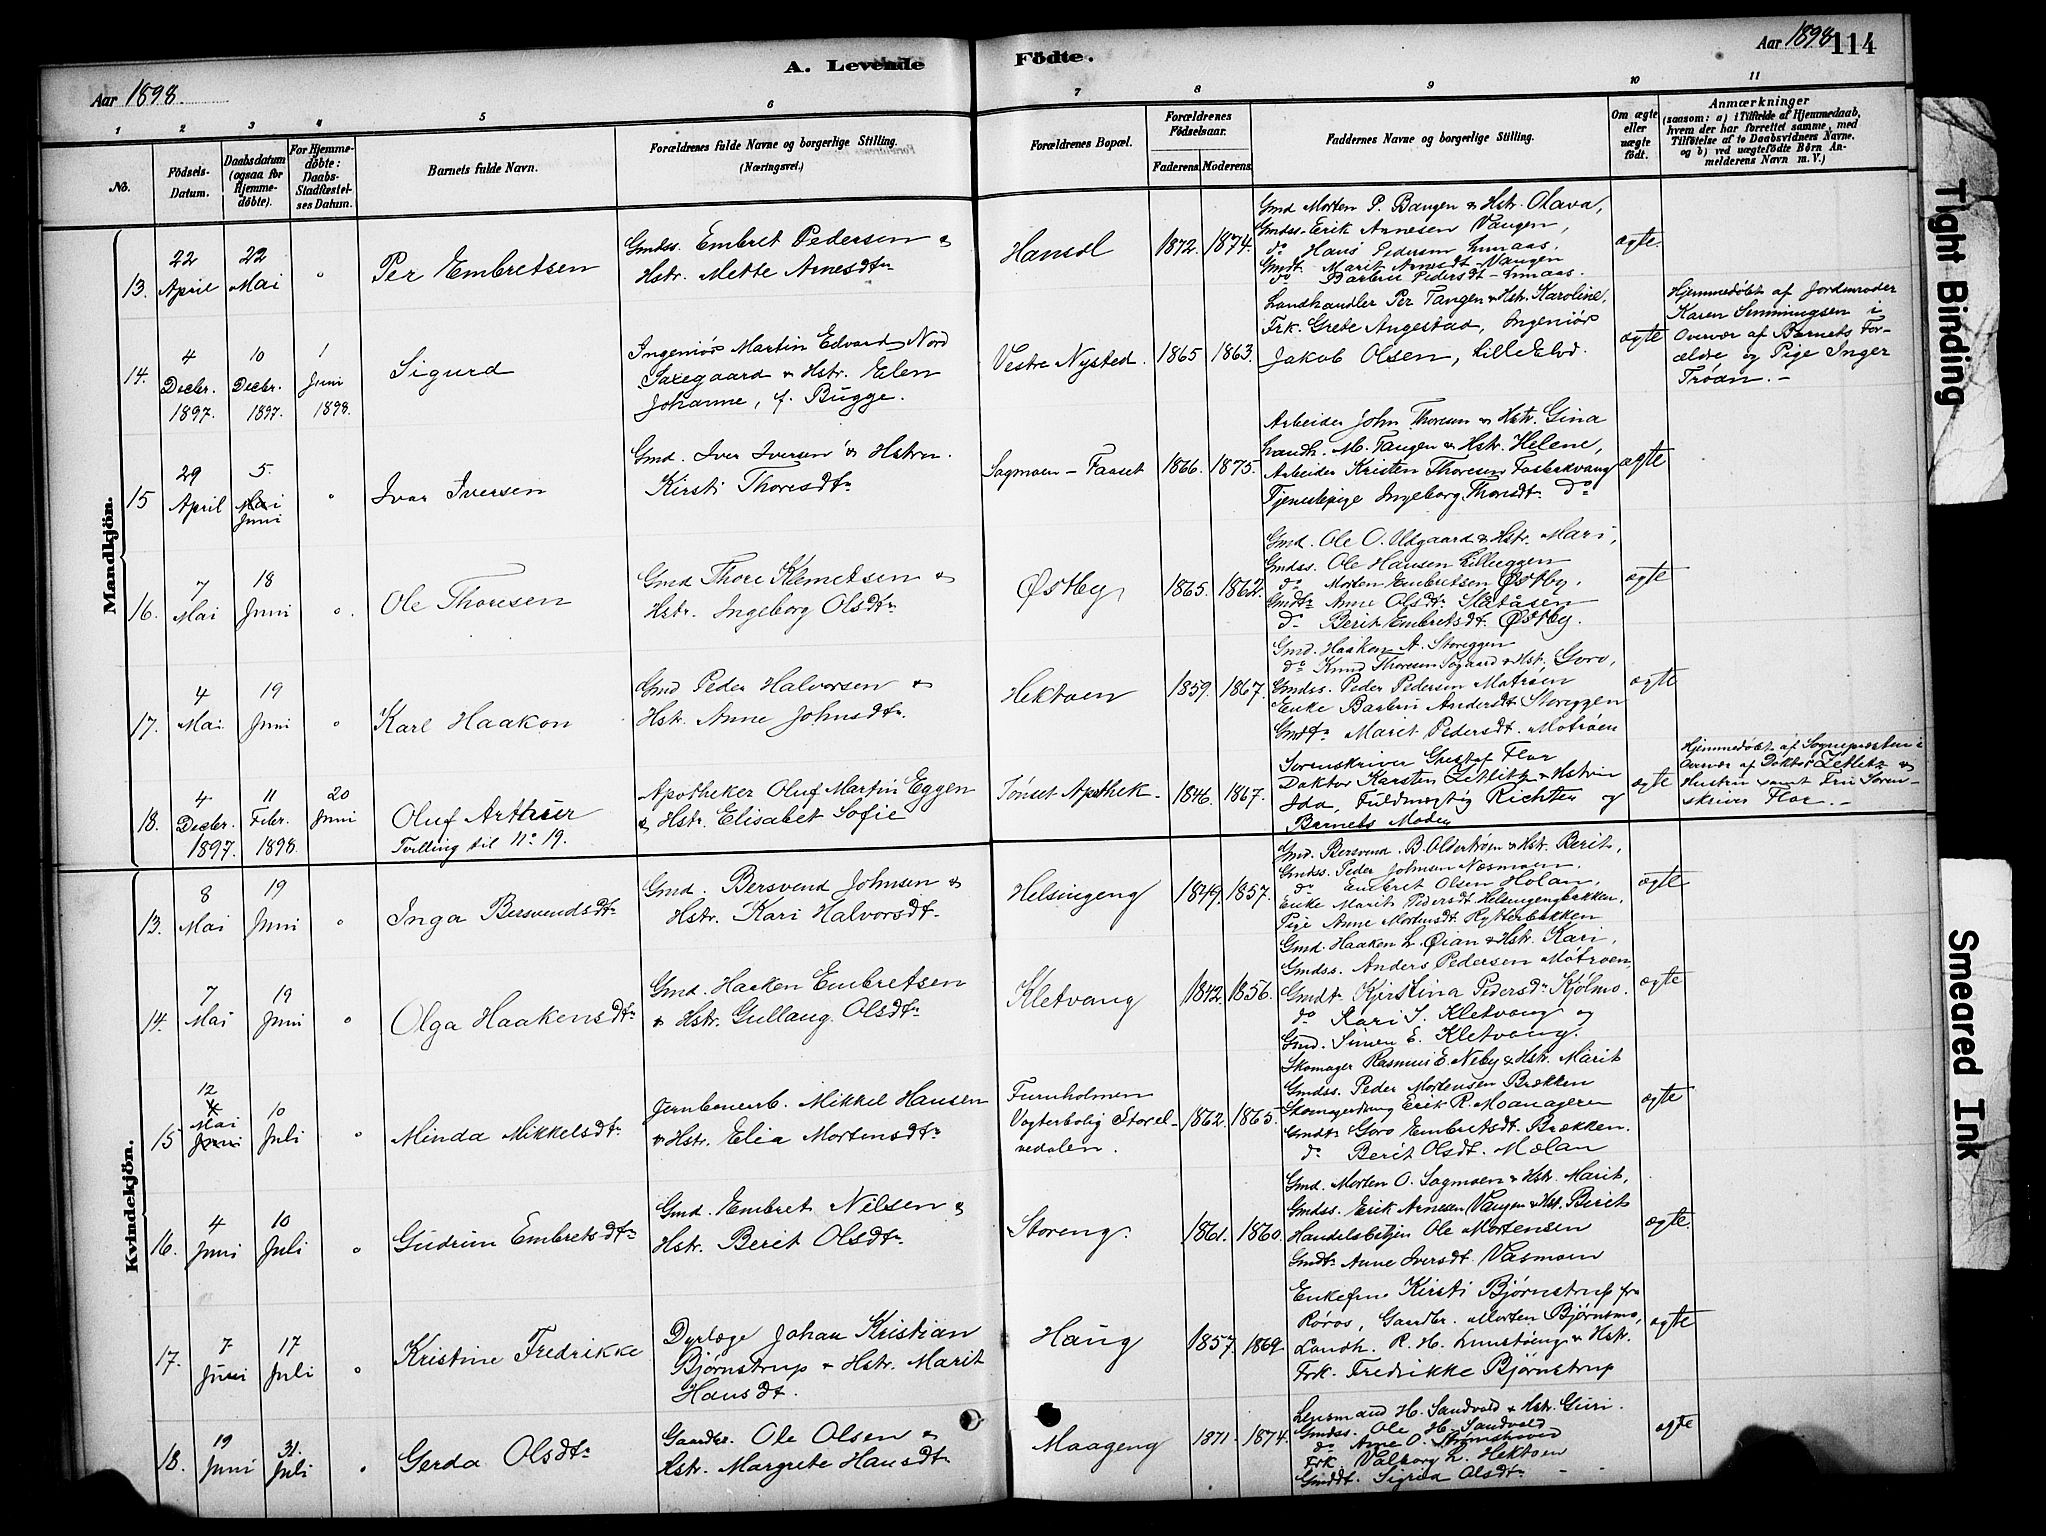 Aar 1898.
A. Levende Födte.
Aar 1898
114
1 2 3 4 5 6 7 8 9 10 11
No.
Födsels-
Datum.
Daabsdatum
(ogsaa for
Hjemme-
döbte).
For Hjemme-
döbte:
Daabs-
Stadfæstel-
ses Datum.
Barnets fulde Navn.
Forældrenes fulde Navne og borgerlige Stilling.
(Næringsvei.)
Forældrenes Bopæl.
Forældrenes
Födselsaar.
Faderens. Moderens.
Faddernes Navne og borgerlige Stilling.
Om ægte
eller
uægte
födt.
Anmærkninger
(saasom: a) i Tilfælde af Hjemmedaab,
hvem der har forrettet samme, med
Tilföielse af to Daabsvidners Navne.
og b) ved uægtefödte Börn An-
melderens Navn m. V.)
Mandkjön.
13.
22
April
22
Mai
"
Per Embretsen
Gmdss. Embret Pedersen &
Hstr. Mette Arnesdtr
Hansol
1872. 1874.
Gmd Morten P. Bangen & Hstr. Olava,
Gmdss. Erik Arnesen Vangen,
do Hans Pedersen Lunaas.
Gmdt. Marit Arnesdt. Vangen
do Barbru Pedersdt. Lunaas.
ægte
14.
4
Decbr.
1897.
10
Decbr.
1897.
1
Juni
1898.
Sigurd
Ingeniör Martin Edvard Nord
Saxegaard & Hstr. Elen
Johanne, f. Bugge.
Vestre Nysted.
1865 1863.
Landhandler Per Tangen & Hstr. Karoline,
Frk. Grete Angestad, Ingeniör
Jakob Olsen, Lille Elvd.
ægte
Hjemmedöbt af Jordmoder
Karen Simmingsen i
Overvær af Barnets For-
ældre og Pige Inger
Tröan. -
15
29
April
5.
Mai
Juni
"
Ivar Iversen
Gmd. Iver Iversen & Hstru
Kirsti Thoresdtr
Sagmoen - Faaset
1866. 1875.
Arbeider John Thoresen & Hstr. Gina
Landh. M. Tangen & Hstr. Helene,
Arbeider Kristen Thoresen Fosbakvang
Tjenestepige Ingeborg Thoresdtr do
ægte
16.
7
Mai
18
Juni
"
Ole Thoresen
Gmd Thore Klemetsen &
Hstr. Ingeborg Olsdtr
Østby
1865. 1862.
Gmd. Ole O. Udgaard & Hstr. Mari,
Gmdss. Ole Hansen Lilleeggen
do Morten Embretsen Østby.
Gmdtr Anne Olsdtr Slåtåsen
do Berit Embretsdt. Østby.
ægte
17.
4
Mai
19
Juni
"
Karl Haakon
Gmd Peder Halvorsen &
Hstr. Anne Johnsdtr.
Hektoen
1859. 1867.
Gmd. Haaken A. Storeggen
do Knud Thoresen Togaard & Hst. Goro,
Gmdss. Peder Pedersen Motröen
Enke Barbru Andersdt Storeggen
Gmdtr Marit Pedersdt. Motröen
ægte
18.
4
Decbr.
1897.
11
Febr.
1898.
20
Juni
Oluf Arthur
Tvilling til No 19.
Apotheker Oluf Martin Eggen
& Hstr. Elisabet Sofie
Tönset Apothek.
1846. 1867.
Sorenskriver Gustaf Flor
Doktor Karsten Zetlitz & Hstru
Ida, Fuldmægtig Richter og
Barnets Moder
ægte
Hjemmedöbt af Sognepresten i
Overvær af Doktor Zetlitz &
Hustru samt Fru Soren-
skriver Flor. -
Kvindekjön.
13.
8
Mai
19
Juni
"
Inga Bersvendsdtr
Gmd. Bersvend Johnsen &
Hstr. Kari Halvorsdt.
Helsingeng
1849. 1857.
Gmd. Bersvend B. Oldertröen & Hstr. Berit,
Gmdss. Peder Johnsen Næsmoen.
do Embret Olsen Holan,
Enke Marit Pedersdt Helsingengbakken,
Pige Anne Mortensdt. Rytterbakken
ægte
14.
7
Mai
19
Juni
"
Olga Haakensdtr
Gmd. Haaken Embretsen
& Hstr. Gullaug Olsdtr
Kletvang
1842. 1856.
Gmd. Haaken L. Øian & Hstr. Kari,
Gmdss. Anders Pedersen Motröen,
Gmdt. Kjirstina Pedersdr Kjölmo.
do Kari S. Kletvang og
Gmd. Simen E. Kletvang.
ægte
15
12
Mai
Juni
10
Juli
"
Minda Mikkelsdtr
Jernbanearb. Mikkel Hansen
& Hstr. Elia Mortensdtr
Furuholmen
Vogterbolig Storel-
vedalen.
1862. 1865.
Skomager Rasmus E. Neby & Hstr. Marit
Gmdss. Peder Mortensen Brækken
Skomagersvang Erik R. Moanageren
Gmdtr Goro Embretsdt. Brækken.
do Berit Olsdt. Mælan
ægte
16.
4
Juni
10
Juli
"
Gudrun Embretsdtr
Gmd. Embret Nilsen &
Hstr. Berit Olsdtr
Storeng.
1861. 1860.
Gmd. Morten O. Sagmoen & Hstr. Marit,
Gmdss. Erik Arnesen Vangen & Hst. Berit
Handelsbetjen Ole Mortensen
Gmdtr Anne Iversdt. Vasmoen
ægte.
17.
7
Juni
17
Juli
"
Kristine Fredrikke
Dyrlæge Johan Kristian
Bjørnstrup & Hstr. Marit
Hansdt.
Haug
1857. 1869
Enkefru Kirsti Bjørnstrup fra
Røros, Gaardbr. Morten Bjørnsmo,
Landh. R. H. Lunstöeng & Hstr.
Frk. Fredrikke Bjørnstrup
ægte
18.
19
Juni
31.
Juli
"
Gerda Olsdtr
Gaardbr. Ole Olsen &
Hstr. Margrete Hansdtr
Maageng
1871. 1874.
Lensmand H. Sandvold & Hstr. Guri.
Gmdss. Ole H. Sandvold
do Arne O.
Frk. Valborg L. Hektoen
Gmddt. Sigrid Olsdtr
ægte
Tight Binding
Smeared Ink